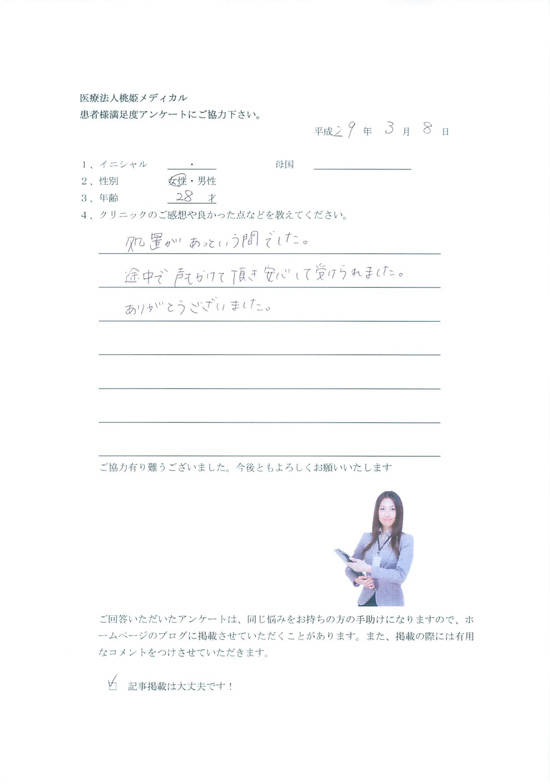 医療法人桃姫メディカル
患者様満足度アンケートにご協力下さい。
平成29年 3月 8日
1、イニシャル ・ 母国
2、性別 女性・男性
3、年齢 28才
4、クリニックのご感想や良かった点などを教えてください。
処置があっという間でした。
途中で声もかけて頂き安心して受けられました。
ありがとうございました。
ご協力有り難うございました。今後ともよろしくお願いいたします
ご回答いただいたアンケートは、同じ悩みをお持ちの方の手助けになりますので、ホ
ームページのブログに掲載させていただくことがあります。また、掲載の際には有用
なコメントをつけさせていただきます。
☑ 記事掲載は大丈夫です!